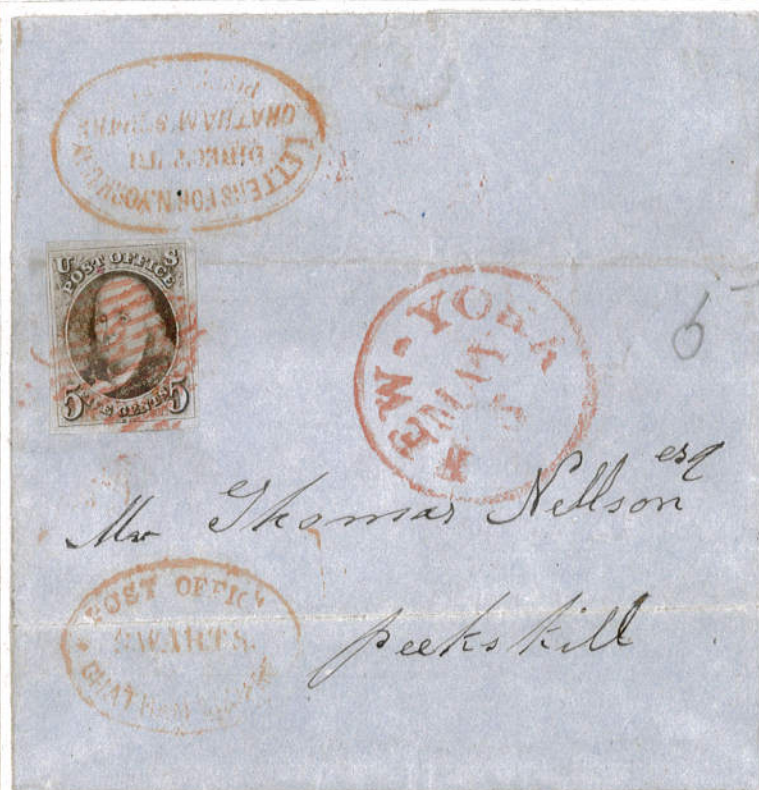 LETTERS FOR N. YORK
DIRECT TO
CHATHAM SQUARE
U S
POST OFFICE
5 FIVE CENTS 5
NEW-YORK
MAY
5
5
Mr Thomas Nellson esq
peekskill
POST OFFICE
SWARTS.
CHATHAM SQUARE